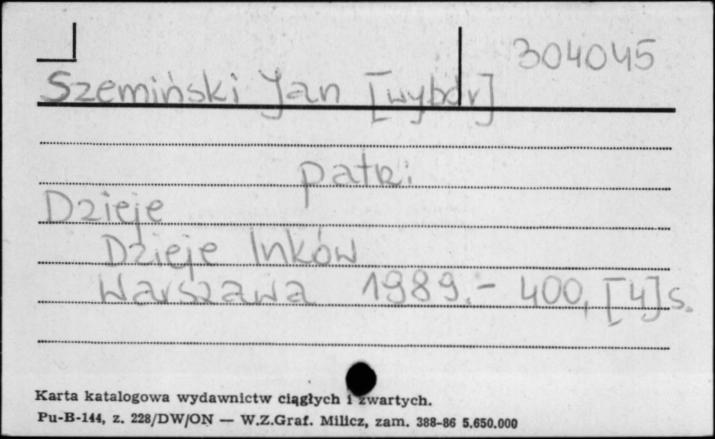 304045
Szemiński Jan [wybór]
patrz:
Dzieje
Dzieje Inków
Warszawa 1989.- 400, [4]s.
Karta katalogowa wydawnictw ciągłych i zwartych.
Pu-B-144, z. 228/DW/ON — W.Z.Graf. Milicz, zam. 388-86 5.650.000